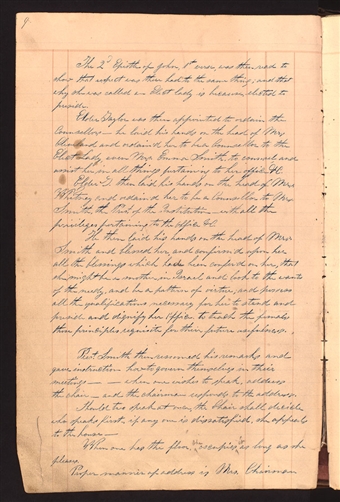 8
The 2d Epistle of John, 1st verse, was then read to
show that respect was then had to the same thing; and that
why she was called an Elect lady is because, elected to
preside.
Elder Taylor was then appointed to ordain the
Counsellors — he laid his hands on the head of Mrs
Cleveland and ordained her to be a Counsellor to the
Elect Lady, even Mrs. Emma Smith, to counsel, and
assist her in all things pertaining to her office &c
Elder T. then laid his hands on the head of Mrs
Whitney and ordained her to be a Counsellor to Mrs
Smith, the Prest of the Institution — with all the
privileges pertaining to the office &c
He then laid his hands on the head of Mrs
Smith and blessed her, and confirmed upon her
all the blessings which have been conferred on her, that
she might be a mother in Israel and look to the wants
of the needy, and be a pattern of virtue, and possess
all the qualifications necessary for her to stand and
preside and dignify her Office, to teach the females
those principles requisite for their future usefulness.
Prest. Smith then resumed his remarks and
gave instruction how to govern themselves in their
meetings — when one wishes to speak, address
the chair — and the chairman responds to the address.
Should two speak at once, the Chair shall decide
who speaks first, if any one is dissatisfied, she appeals
to the house —
When one has the floor, occupies as long as she
pleases.
Proper manner of address is Mrs. Chairman